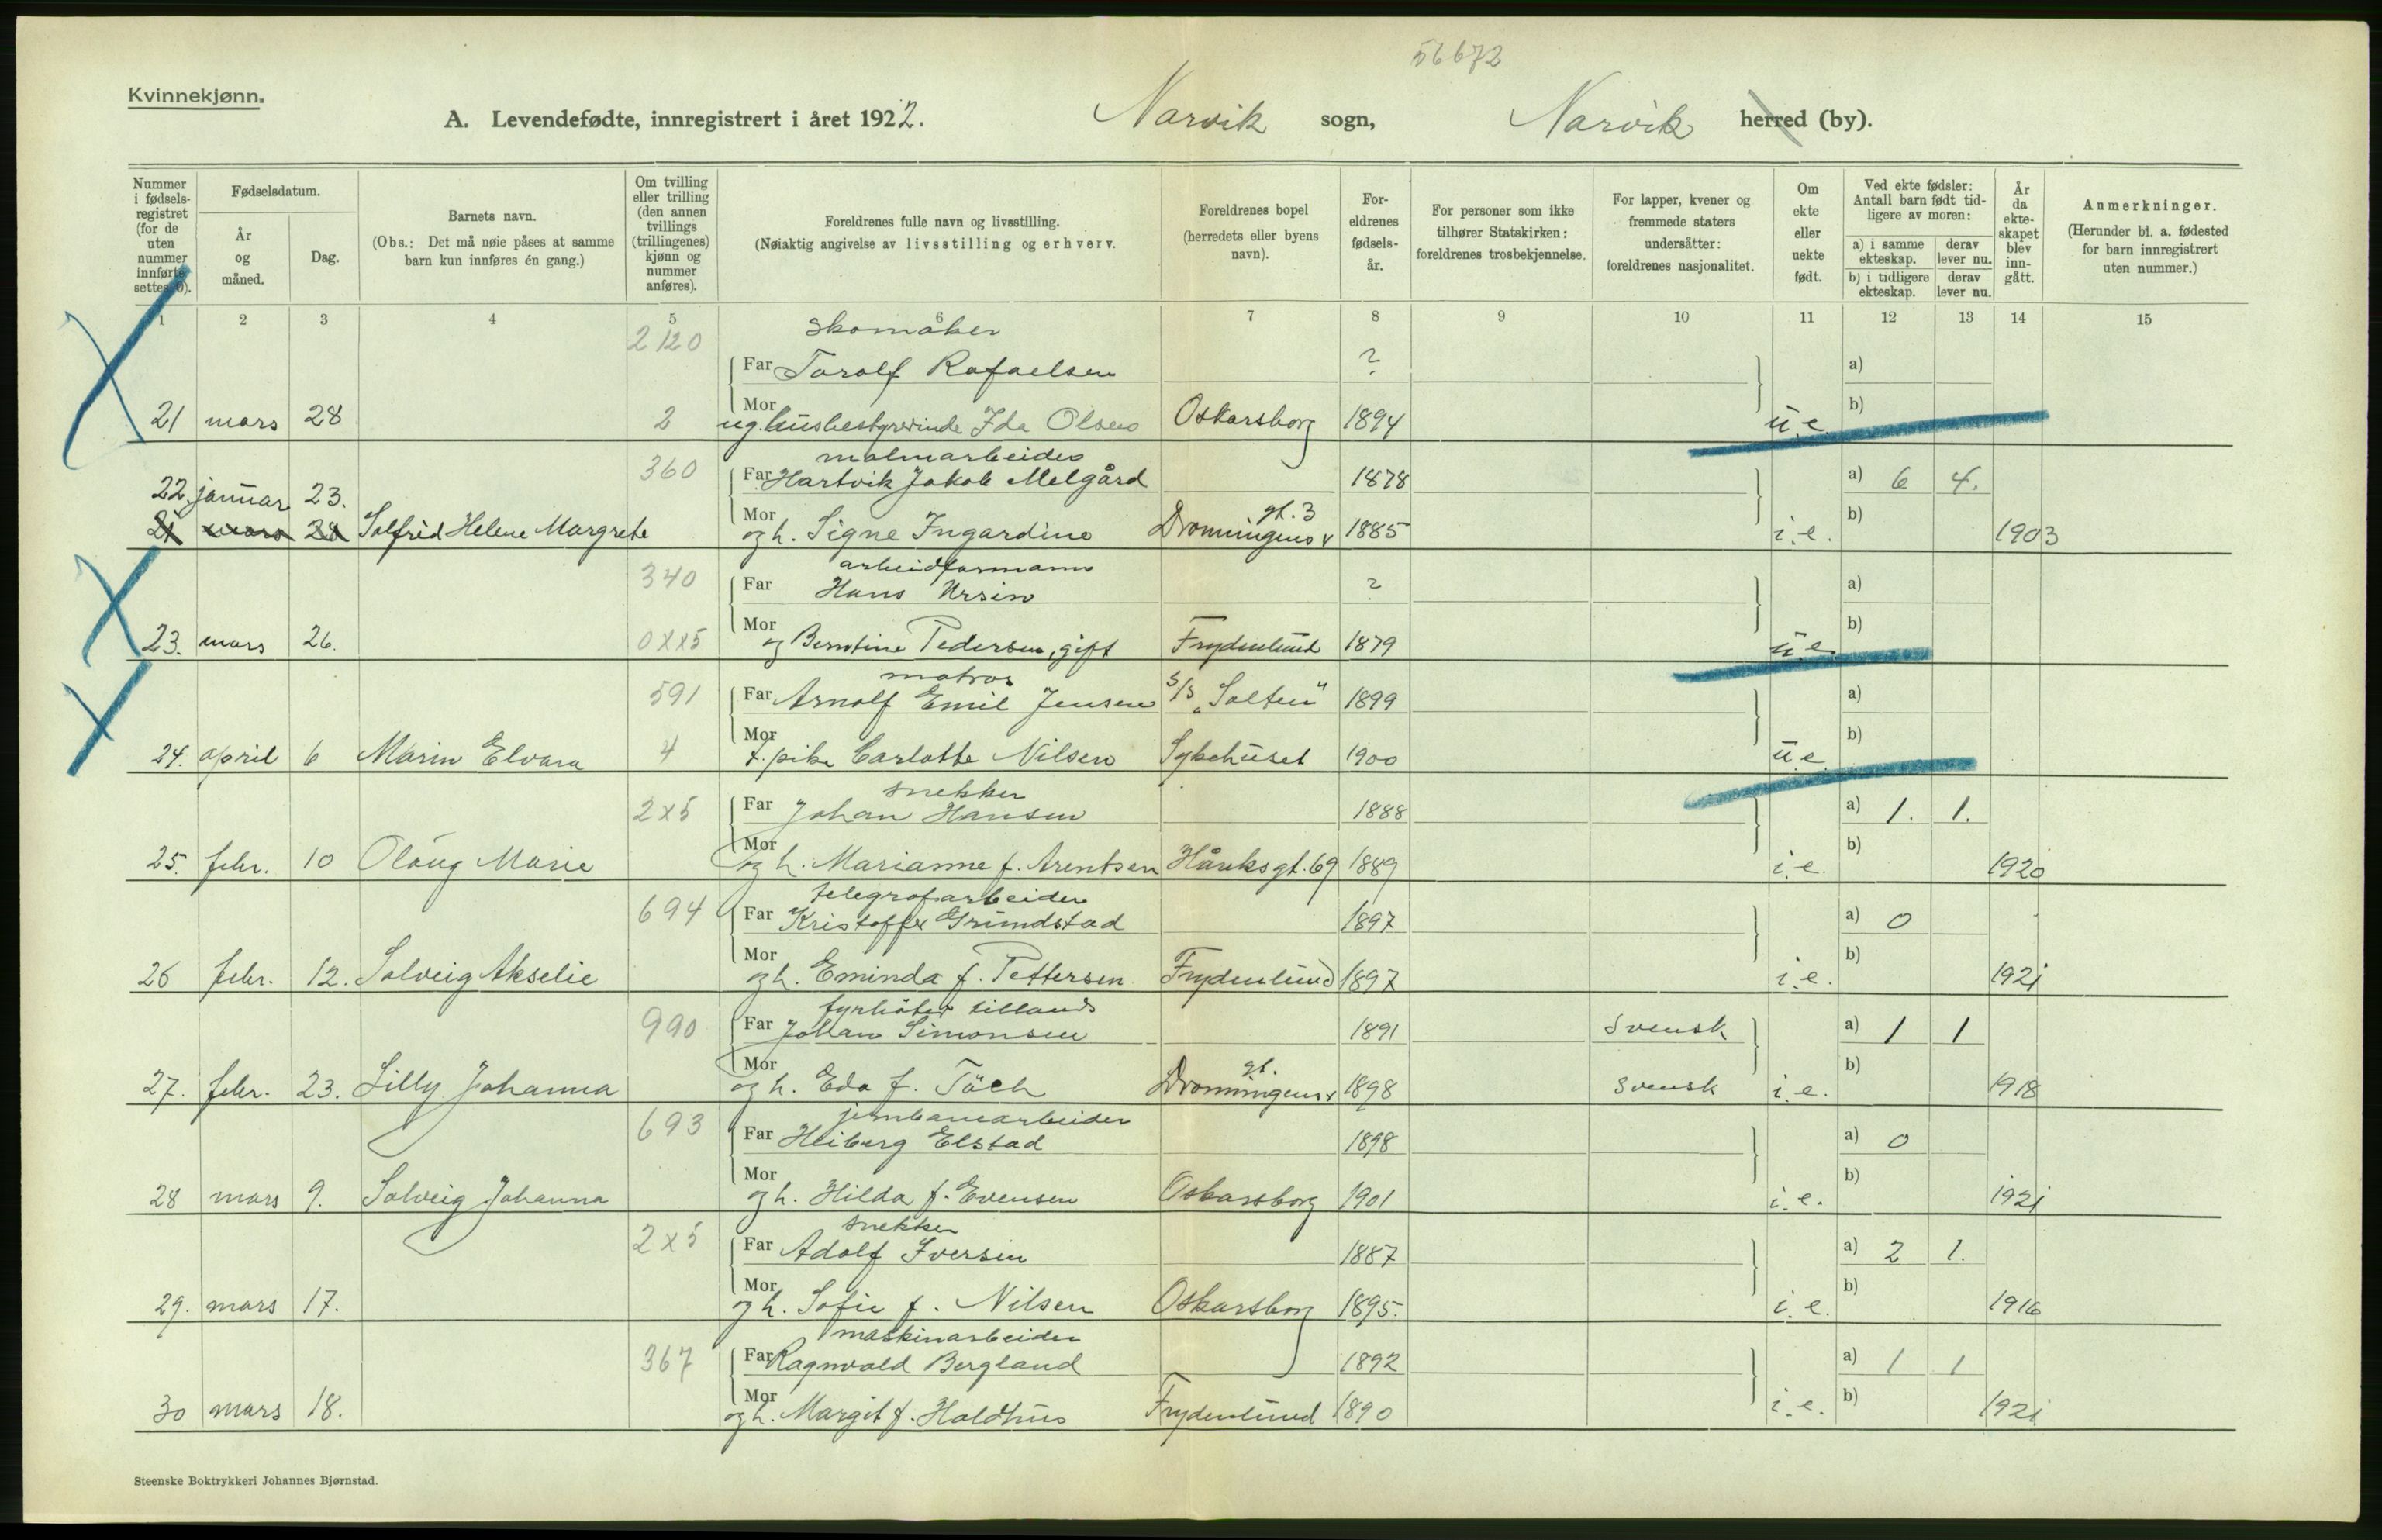 56672
Kvinnekjønn.
A. Levendefødte, innregistrert i året 1922. Narvik sogn, Narvik herred (by).
Nummer i fødselsregistret (for de uten nummer innførte settes 0).
Fødselsdatum.
År og måned.
Dag.
Barnets navn.
(Obs.: Det må nøie påses at samme barn kun innføres én gang.)
Om tvilling eller trilling (den annen tvillings (trillingenes) kjønn og nummer anføres).
Foreldrenes fulle navn og livsstilling.
(Nøiaktig angivelse av livsstilling og erhverv.
Foreldrenes bopel (herredets eller byens navn).
Foreldrenes fødselsår.
For personer som ikke tilhører Statskirken: foreldrenes trosbekjennelse.
For lapper, kvener og fremmede staters undersåtter: foreldrenes nasjonalitet.
Om ekte eller uekte født.
Ved ekte fødsler: Antall barn født tidligere av moren:
a) i samme ekteskap. derav lever nu.
b) i tidligere ekteskap. derav lever nu.
År da ekteskapet blev inngått.
Anmerkninger.
(Herunder bl. a. fødested for barn innregistrert uten nummer.)
1 2 3 4 5 6 7 8 9 10 11 12 13 14 15
skomaker
2120 Far Torolf Rafaelsen ? a)
21 mars 28 2 Mor ug. husbestyrerinde Ida Olsen Oskarsborg 1894 u.e. b)
malmarbeider
360 Far Hartvik Jakob Melgård 1878 a) 6 4.
22. januar 23.
21 mars 28 Solfrid Helene Margrete Mor og h. Signe Ingardine Dronningens gt. 3 1885 i.e. b) 1903
arbeidformann
340 Far Hans Ursin ? a)
23. mars 26. 0xx5 Mor og Berntine Pedersen, gift Frydenlund 1879 u.e. b)
matros
591 Far Arnolf Emil Jensen S/S "Salten" 1899 a)
24. april 6 Marin Elvara 4 Mor t. pike Carlotte Nilsen Sykehuset 1900 u.e. b)
snekker
2x5 Far Johan Hansen 1888 a) 1. 1.
25. febr. 10 Olaug Marie Mor og h. Marianne f. Arentsen Håreksgt. 69 1889 i.e. b) 1920
telegrafarbeider
694 Far Kristoffer Grundstad 1897 a) 0
26 febr. 12. Solveig Akselie Mor og h. Eminda f. Pettersen Frydenlund 1897 i.e. b) 1921
fyrbøter tillands
990 Far Johan Simonsen 1891 Svensk a) 1 1
27. febr. 23. Lilly Johanna Mor og h. Eda f. Täch Dronningens gt. 1898 Svensk i.e. b) 1918
jernbanearbeider
693 Far Heiberg Elstad 1898 a) 0
28 mars 9. Solveig Johanna Mor og h. Hilda f. Evensen Oskarsborg 1901 i.e. b) 1921
snekker
2x5 Far Adolf Iversen 1887 a) 2 1.
29. mars 17. Mor og h. Sofie f. Nilsen Oskarsborg 1895. i.e. b) 1916
maskinarbeider
367 Far Ragnvald Bergland 1892 a) 1 1
30 mars 18. Mor og h. Margit f. Holdhus Frydenlund 1890 i.e. b) 1921
Steenske Boktrykkeri Johannes Bjørnstad.